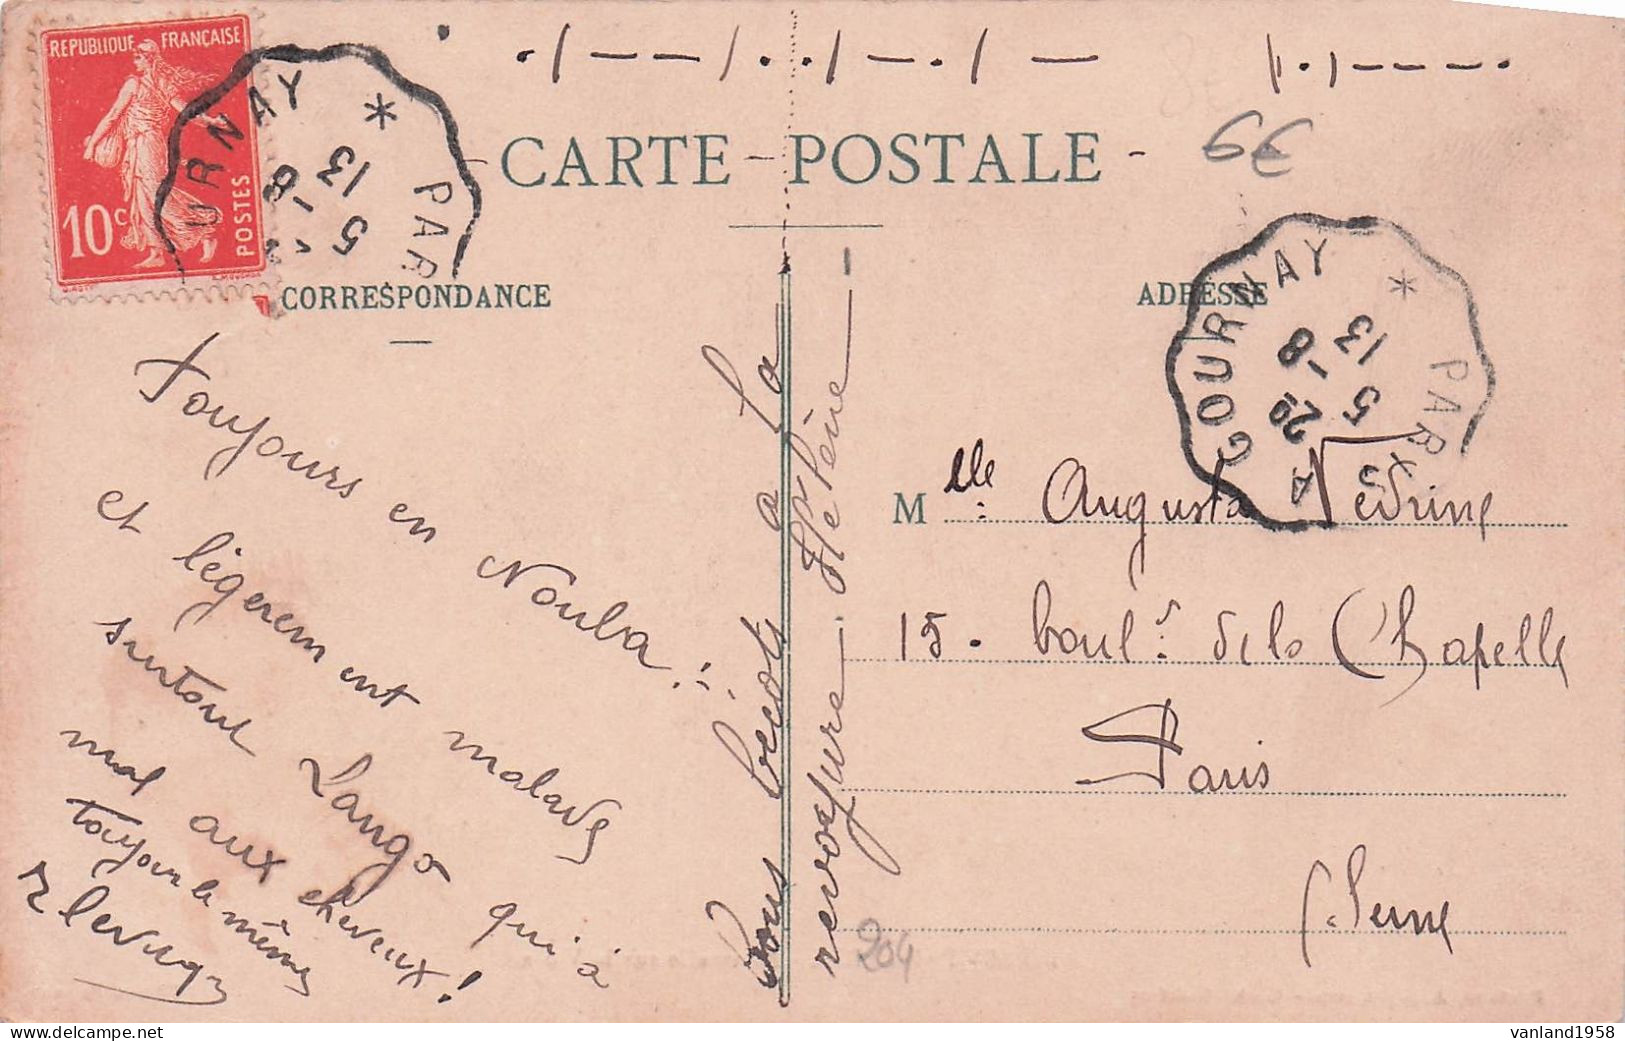 ./--/../-./ - /./---.
REPUBLIQUE FRANÇAISE
10c
POSTES
URNAY * PAR
13
5 -8
CARTE POSTALE
6€
CORRESPONDANCE
ADRESSE
A GOURNAY * PARIS
13
5 -8
20
Toujours en Nouba !..
et légèrement malade
surtout Lango qui a
mal aux cheveux !
toujours le même
Bons bécots à la
revoyure. Hélène
Mlle Augusta Vedrine
15. boul.d de la Chapelle
Paris
Seine
204
vanland1958